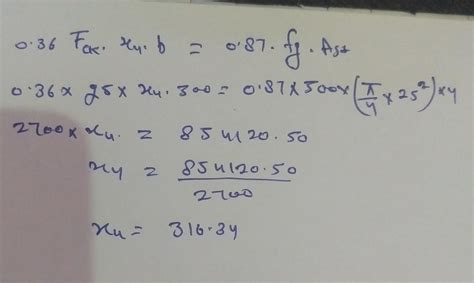 0.36 Fck. xu. b = 0.87. fy. Ast
0.36 x 25 x xu. 300 = 0.87 x 500 x (π/4 x 25²) x 4
2700 x xu. = 854120.50
xu = 854120.50 / 2700
xu = 316.34